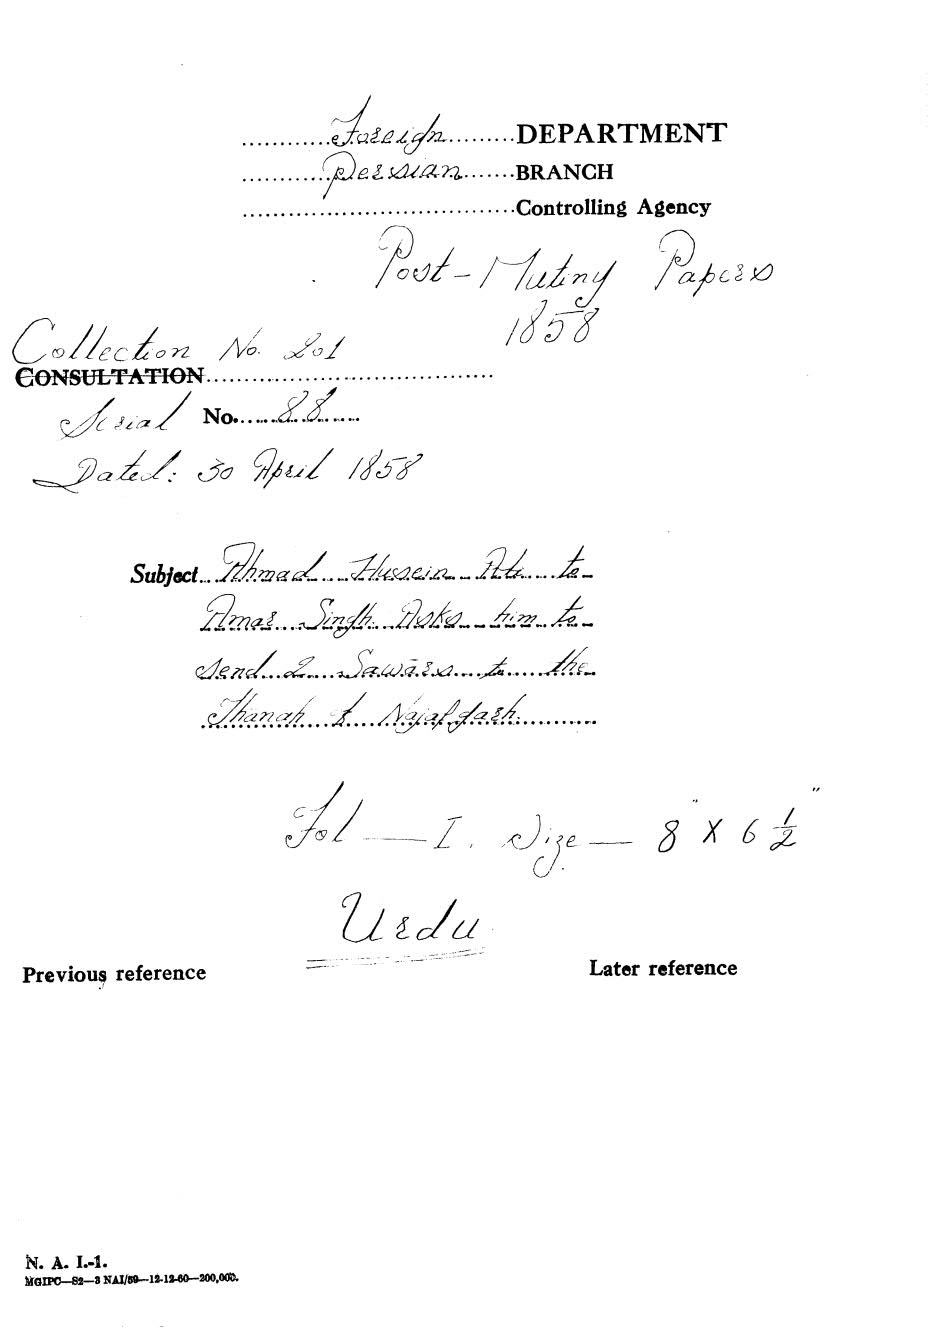 Foreign DEPARTMENT
Persian BRANCH
Controlling Agency
Post-Mutiny Papers
1858
Collection No. 201
CONSULTATION
Serial No. 88
Dated: 30 April 1858
Subject Ahmad Hussein to
Amar Singh. Asks him to
send 2 Sawars to the
Thanah of Najafgarh.
Fol — I. Size — 8" X 6 1/2"
Urdu
Previous reference
Later reference
N. A. I.-1.
MGIPC—S2—3 NAI/59—12-12-60—200,000.